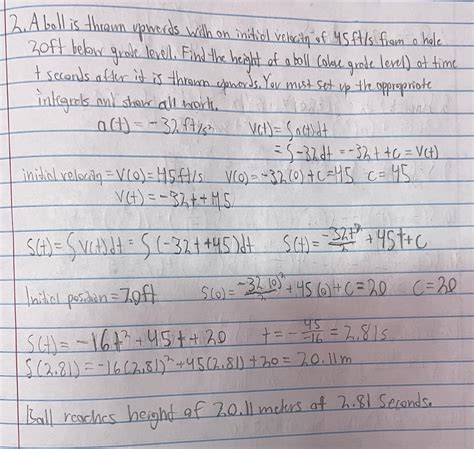 2. A ball is thrown upwards with an initial velocity of 45ft/s from a hole
20ft below grade level. Find the height of a ball (above grade level) at time
t seconds after it is thrown upwards. You must set up the appropriate
integrals and show all work.
a(t) = -32 ft/s² V(t) = ∫a(t)dt
= ∫-32dt = -32t + c = V(t)
initial velocity = V(0) = 45ft/s V(0) = -32(0) + c = 45 c = 45
V(t) = -32t + 45
S(t) = ∫V(t)dt = ∫(-32t + 45)dt S(t) = -32t²/2 + 45t + C
Initial position = 20ft S(0) = -32(0)²/2 + 45(0) + C = 20 C = 20
S(t) = -16t² + 45t + 20 t = -45/-16 = 2.81s
S(2.81) = -16(2.81)² + 45(2.81) + 20 = 20.11m
Ball reaches height of 20.11 meters at 2.81 seconds.